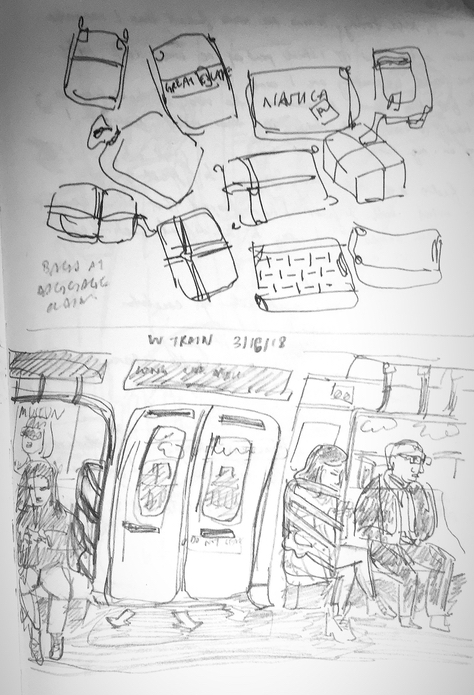 GREAT
NAUTICA
BAGS AT
BAGGAGE
CLAIM
W TRAIN 3/16/18
DO NOT LEAN